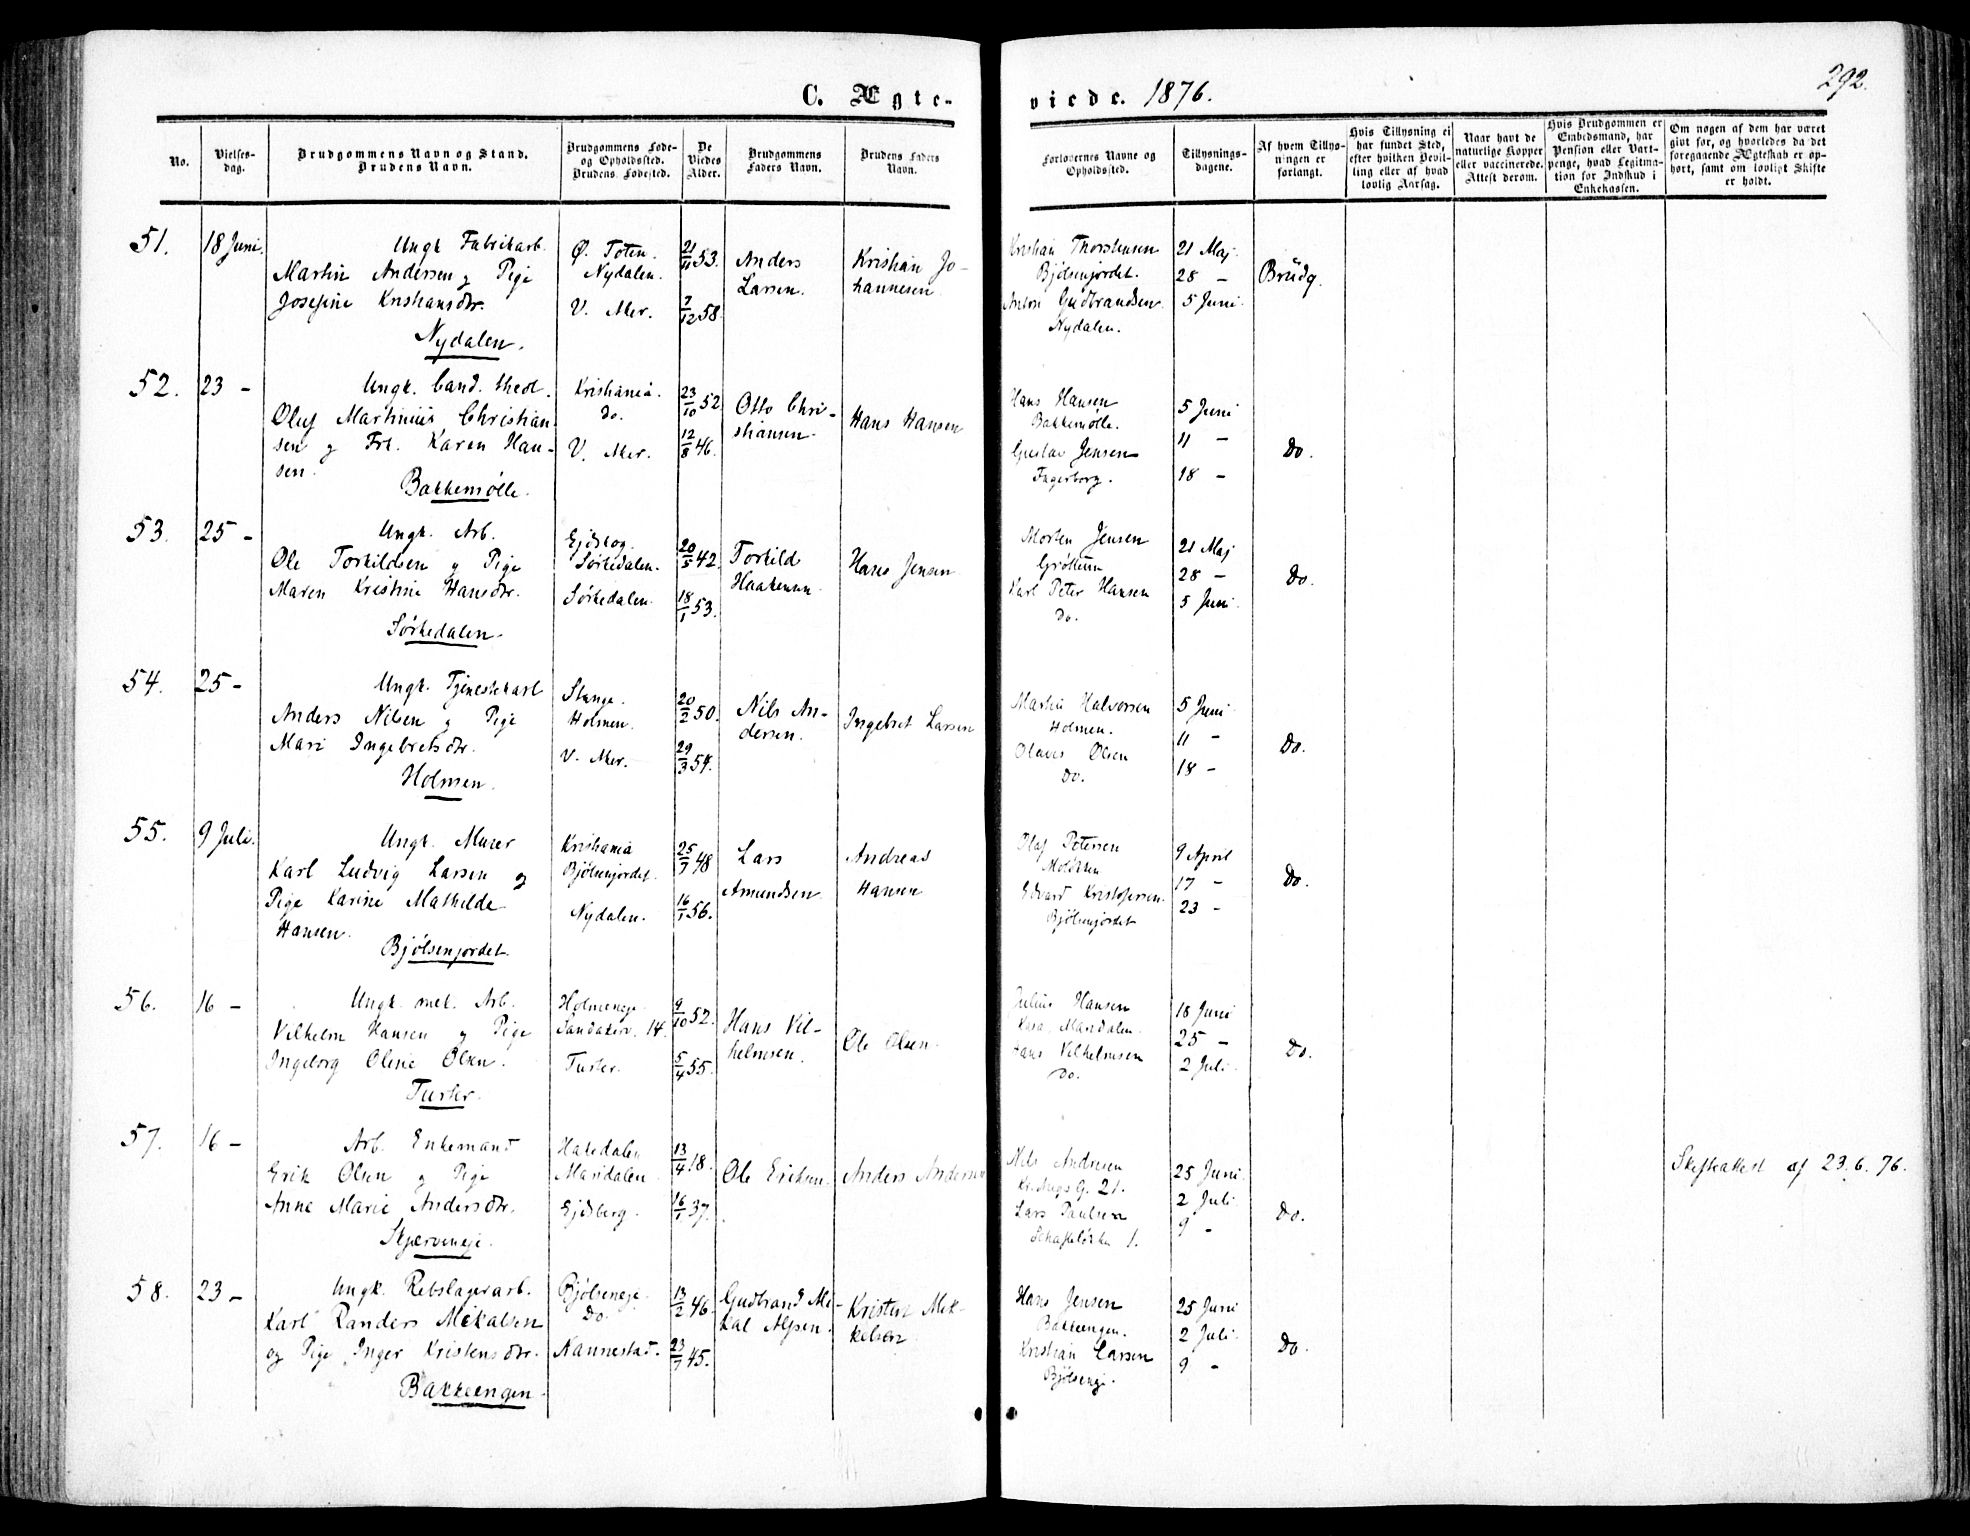 C. Ægte-
viede. 1876.
292.
No.
Vielses-
dag.
Brudgommens Navn og Stand.
Brudens Navn.
Brudgommens Føde-
og Opholdssted.
Brudens Fødested.
De
Viedes
Alder.
Brudgommens
Faders Navn.
Brudens Faders
Navn.
Forlovernes Navne og
Opholdssted.
Tillysnings-
dagene.
Af hvem Tillys-
ningen er
forlangt.
Hvis Tillysning ei
har fundet Sted,
efter hvilken Bevil-
ling eller af hvad
lovlig Aarsag.
Naar havt de
naturlige Kopper
eller vaccinerede.
Attest derom.
Hvis Brudgommen er
Embedsmand, har
Pension eller Vart-
penge, hvad Legitima-
tion for Indskud i
Enkekassen.
Om nogen af dem har været
givt før, og hvorledes da det
foregaaende Ægteskab er op-
hørt, samt om lovligt Skifte
er holdt.
51.
18 Juni.
Ungk. Fabrikarb.
Martin Andersen og Pige
Josefine Kristiansdtr.
Nydalen.
Ø. Toten.
Nydalen.
V. Aker.
21/11 53.
7/12 58.
Anders
Larsen.
Kristian Jo-
hannesen.
Kristian Thorstensen
Bjølsenjordet.
Anton Gudbrandsen
Nydalen.
21 Maj
28 -
5 Juni.
Brudg.
52.
23 -
Ungk. Cand. theol.
Oluf Martinius Christian-
sen og Frk. Karen Han-
sen.
Bakkemølle.
Kristiania.
do.
V. Aker.
23/10 52
12/8 46.
Otto Chri-
stiansen.
Hans Hansen
Hans Hansen
Bakkemølle.
Gustav Jensen
Fagerborg.
5 Juni
11 -
18 -
Do.
53.
25 -
Ungk. Arb.
Ole Torkildsen og Pige
Maren Kristine Hansdtr.
Sørkedalen.
Ejdskog.
Sørkedalen.
Sørkedalen.
20/5 42.
18/1 53.
Torkild
Haakensen.
Hans Jensen
Morten Jensen
Grøttum
Karl Peter Hansen
Do.
21 Maj
28 -
5 Juni.
Do.
54.
25 -
Ungk. Tjenestekarl
Anders Nilsen og Pige
Mari Ingebretsdtr.
Holmen.
Stange.
Holmen.
V. Aker.
20/2 50.
29/3 54.
Nils An-
dersen.
Ingebret Larsen
Martin Halvorsen
Holmen.
Olaves Olsen
Do.
5 Juni.
11 -
18 -
Do.
55.
9 Juli.
Ungk. Murer
Karl Ludvig Larsen og
Pige Karine Mathilde
Hansen.
Bjølsenjordet.
Kristiania
Bjølsenjordet.
Nydalen.
25/7 48
16/1 56.
Lars
Amundsen
Andreas
Hansen
Olaf Petersen
Edvard Kristofersen.
Bjølsenjordet
9 April
17 -
23 -
Do.
56.
16 -
Ungk. mel. Arb.
Vilhelm Hansen og Pige
Ingeborg Oline Olsen.
Turter.
Holmeneje.
Sandakerv. 14.
Turter.
9/10 52.
5/4 55.
Hans Vil-
helmsen.
Ole Olsen.
Julius Hansen
Maridalen.
Hans Vilhelmsen
Do.
18 Juni
25 -
2 Juli.
Do.
57.
16 -
Arb. Enkemand
Erik Olsen og Pige
Anne Marie Andersdtr.
Skjærveneje.
Hakedalen
Maridalen
Ejdsberg.
13/4 18.
16/1 37.
Ole Eriksen.
Anders Andersen
Nils Andresen
G. 21.
Lars Paulsen
1.
25 Juni.
2 Juli.
9 -
Do.
Skifteattest af 23.6.76.
58.
23 -
Ungk. Rebslagerarb.
Karl Randers Mikalsen
og Pige Inger Kristensdtr.
Bakkeengen.
Bjølseneje.
Do.
Nannestad.
13/2 46.
23/7 45.
Gudbrand Mi-
kal Alfsen.
Kristen Mik-
kelsen
Hans Jensen
Bakkeengen.
Kristian Larsen
Bjølseneje.
25 Juni
2 Juli.
9 -
Do.